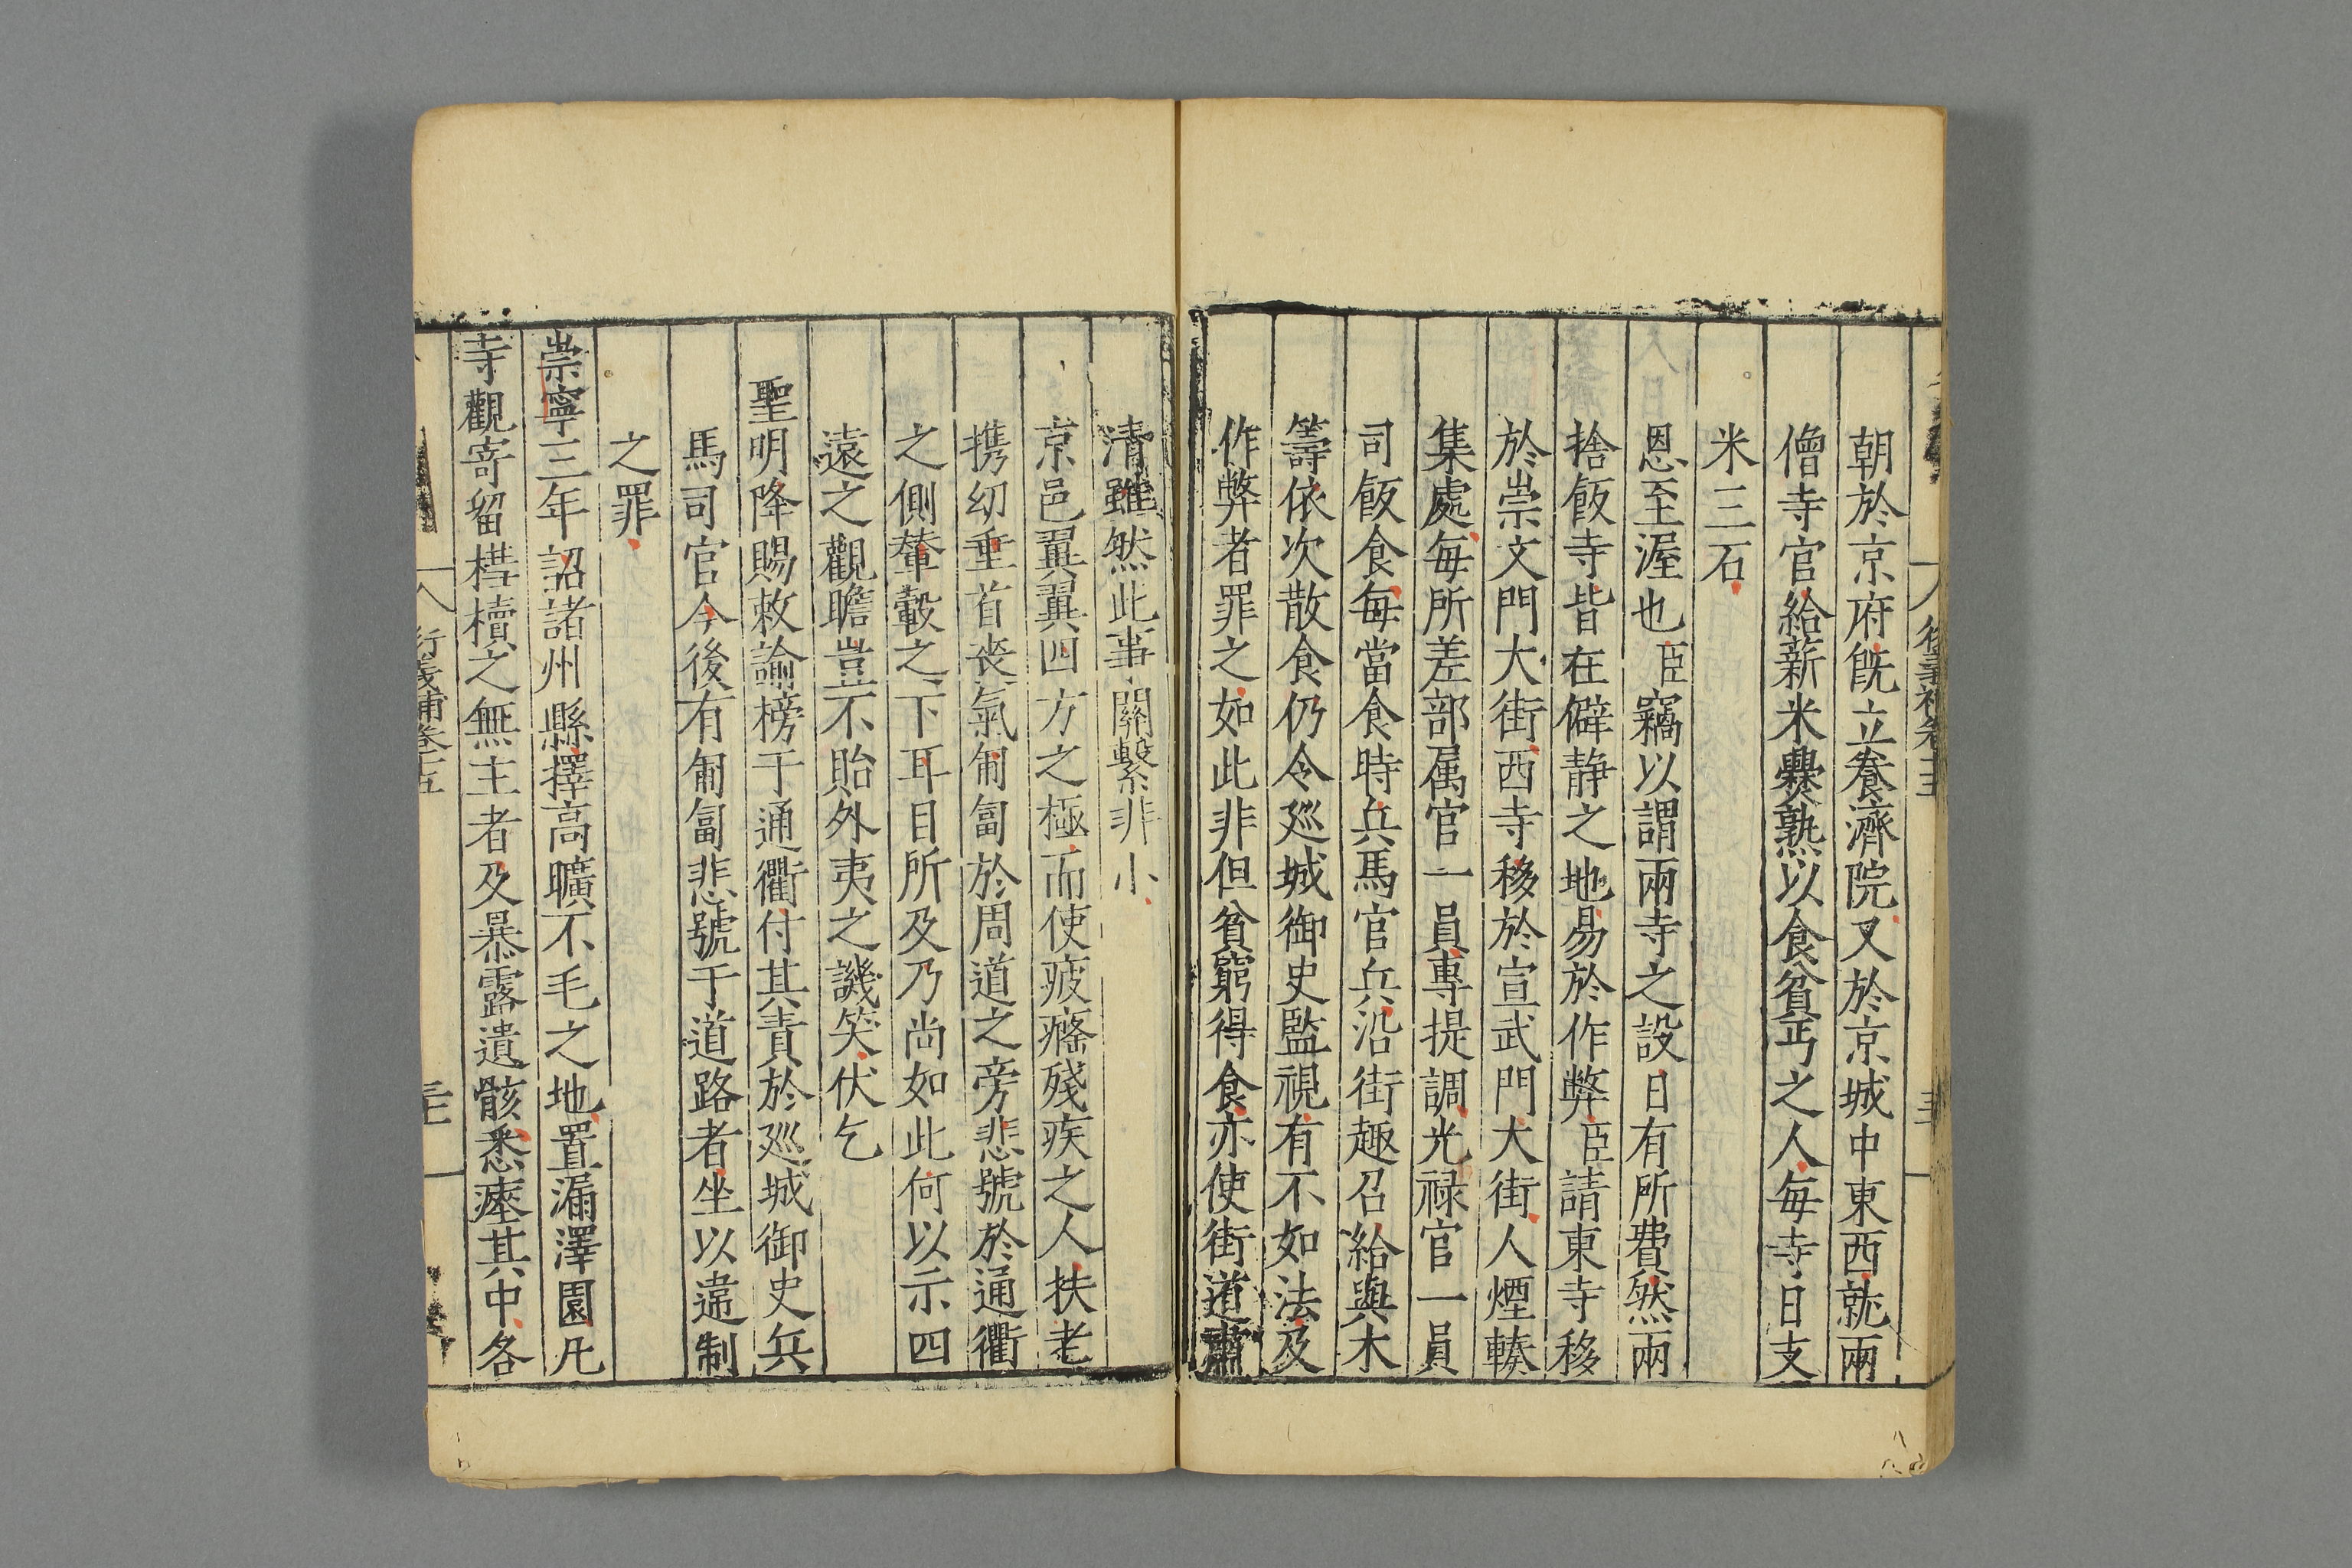 朝於京府既立養濟院又於京城中東西就兩
僧寺官給薪米爨熟以食貧丐之人每寺日支
米三石
恩至渥也臣竊以謂兩寺之設日有所費然兩
捨飯寺皆在僻静之地易於作弊臣請東寺移
於崇文門大街西寺移於宣武門大街人煙輳
集處每所差部属官一員專提調光禄官一員
司飯食每當食時兵馬官兵沿街趣召給與木
籌依次散食仍令廵城御史監視有不如法及
作弊者罪之如此非但貧窮得食亦使街道肅
清雖然此事關繫非小
京邑翼翼四方之極而使疲癃殘疾之人扶老
携幼垂首喪氣匍匐於周道之旁悲號於通衢
之側輦轂之下耳目所及乃尚如此何以示四
遠之觀瞻豈不貽外夷之譏笑伏乞
聖明降賜敕諭榜于通衢付其責於廵城御史兵
馬司官今後有匍匐悲號于道路者坐以違制
之罪
崇寧三年詔諸州縣擇高曠不毛之地置漏澤園凡
寺觀寄留槥櫝之無主者及暴露遺骸悉瘞其中各
衍義補卷十五